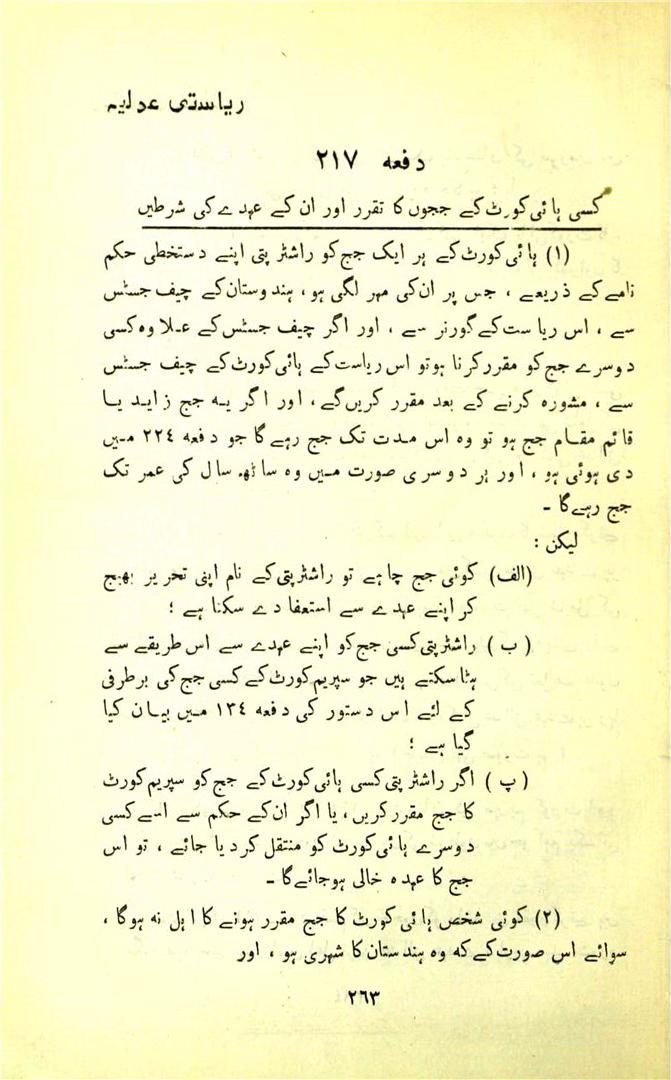 ریاستی عدلیہ
دفعہ ۲۱۷
کسی ہائی کورٹ کے ججوں کا تقرر اور ان کے عہدے کی شرطیں
(۱) ہائی کورٹ کے ہر ایک جج کو راشٹر پتی اپنے دستخطی حکم
نامے کے ذریعے ، جس پر ان کی مہر لگی ہو ، ہندوستان کے چیف جسٹس
سے ، اس ریاست کے گورنر سے ، اور اگر چیف جسٹس کے علاوہ کسی
دوسرے جج کو مقرر کرنا ہو تو اس ریاست کے ہائی کورٹ کے چیف جسٹس
سے ، مشورہ کرنے کے بعد مقرر کریں گے ، اور اگر یہ جج زاید یا
قائم مقام جج ہو تو وہ اس مدت تک جج رہے گا جو دفعہ ۲۲٤ میں
دی ہوئی ہو ، اور ہر دوسری صورت میں وہ ساٹھ سال کی عمر تک
جج رہے گا ۔
لیکن :
(الف) کوئی جج چاہے تو راشٹر پتی کے نام اپنی تحریر بھیج
کر اپنے عہدے سے استعفا دے سکتا ہے ؛
(ب) راشٹر پتی کسی جج کو اپنے عہدے سے اس طریقے سے
ہٹا سکتے ہیں جو سپریم کورٹ کے کسی جج کی برطرفی
کے لئے اس دستور کی دفعہ ۱۳٤ میں بیان کیا
گیا ہے ؛
(پ) اگر راشٹر پتی کسی ہائی کورٹ کے جج کو سپریم کورٹ
کا جج مقرر کریں ، یا اگر ان کے حکم سے اسے کسی
دوسرے ہائی کورٹ کو منتقل کر دیا جائے ، تو اس
جج کا عہدہ خالی ہوجائے گا ۔
(۲) کوئی شخص ہائی کورٹ کا جج مقرر ہونے کا اہل نہ ہوگا ،
سوائے اس صورت کے کہ وہ ہندستان کا شہری ہو ، اور
۲٦۳